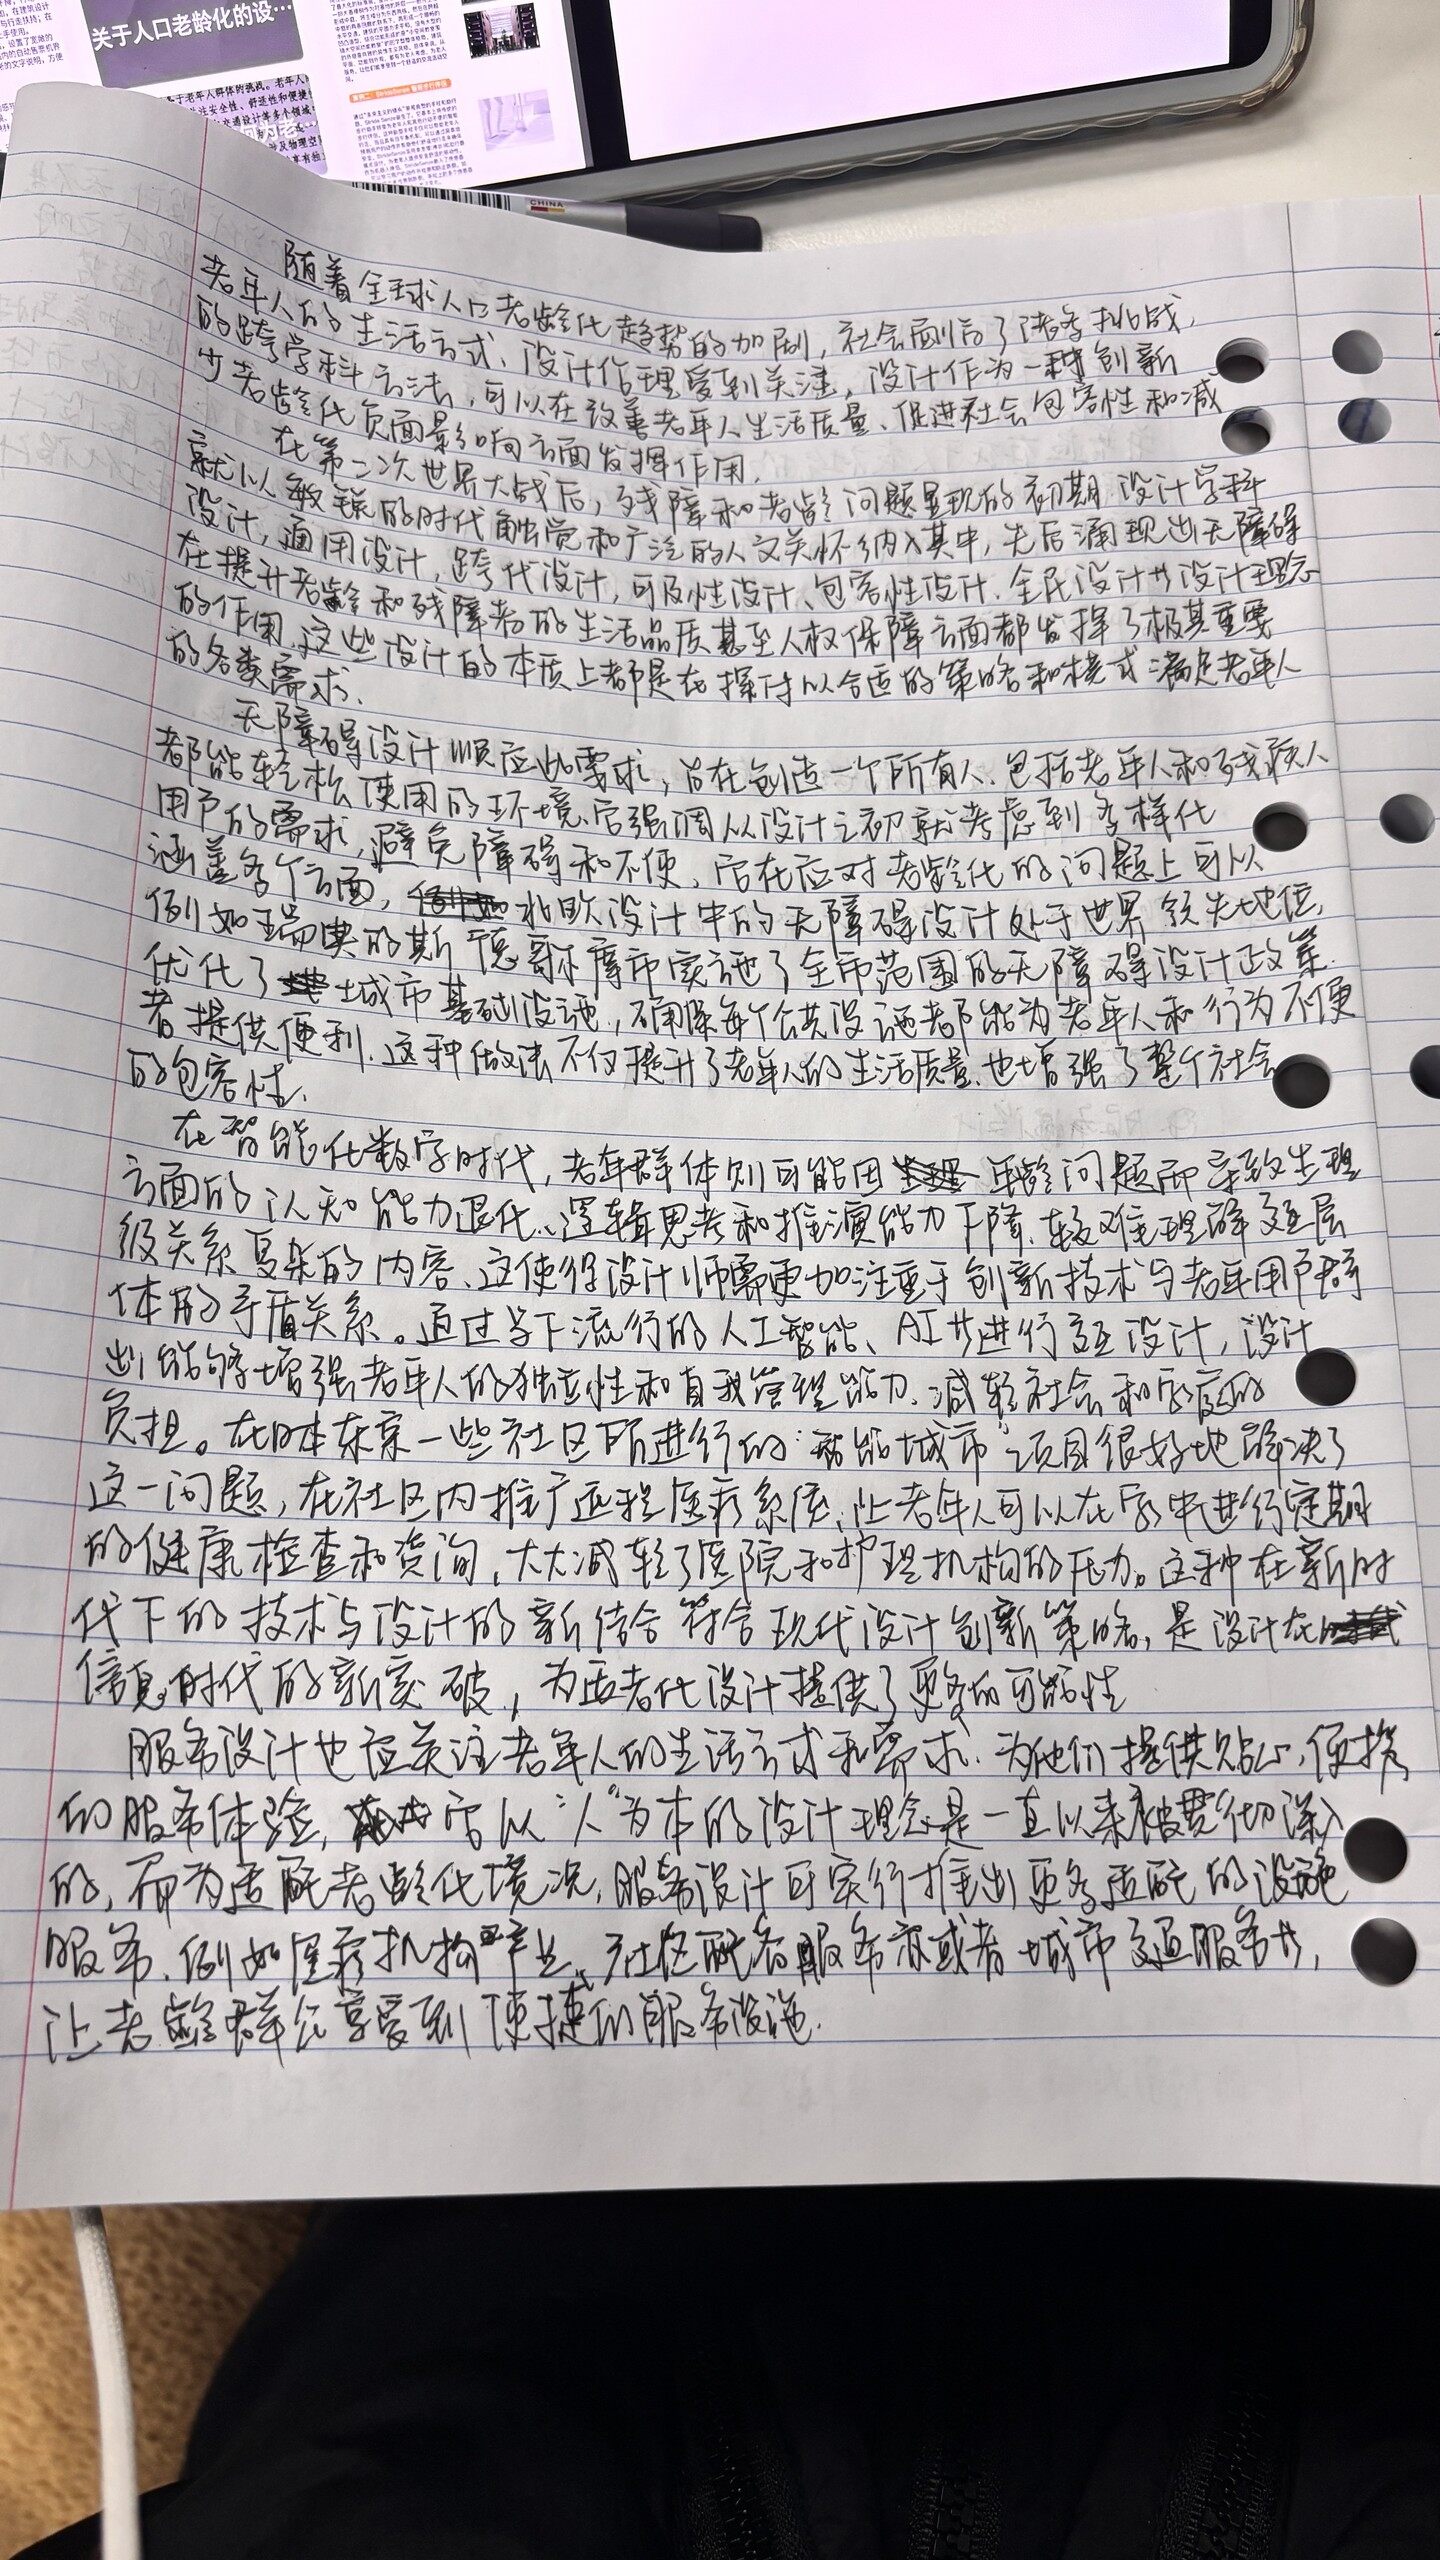 关于人口老龄化的设…
CHINA
随着全球人口老龄化趋势的加剧，社会面临了诸多挑战，
老年人的生活方式、设计伦理受到关注，设计作为一种创新
的跨学科方法，可以在改善老年人生活质量、促进社会包容性和减
少老龄化负面影响方面发挥作用.
在第二次世界大战后，残障和老龄问题显现的初期，设计学科
就以敏锐的时代触觉和广泛的人文关怀纳入其中，先后涌现出无障碍
设计，通用设计，跨代设计，可及性设计、包容性设计、全民设计 设计理念
在提升老龄和残障者的生活品质甚至人权保障方面都发挥了极其重要
的作用.这些设计的本质上都是在探讨以合适的策略和模式满足老年人
的各类需求.
无障碍设计顺应此需求，旨在创造一个所有人、包括老年人和残疾人
都能轻松使用的环境、它强调从设计之初就考虑到多样化
用户的需求，避免障碍和不便、它在应对老龄化的问题上可以
涵盖多个方面，北欧设计中的无障碍设计处于世界领先地位，
例如瑞典的斯德哥尔摩市实施了全市范围的无障碍设计政策.
优化了城市基础设施，确保每个公共设施都能为老年人和行为不便
者提供便利.这种做法不仅提升了老年人的生活质量、也增强了整个社会
的包容性.
在智能化数字时代，老年群体则可能因年龄问题而导致生理
方面的认知能力退化、逻辑思考和推演能力下降、较难理解交互层
级关系复杂的内容、这使得设计师需更加注重于创新技术与老年用户群
体的矛盾关系。通过当下流行的人工智能、AI 进行交互设计，设计
出能够增强老年人的独立性和自我管理能力、减轻社会和家庭的
负担。在日本东京一些社区所进行的“智能城市”项目很好地解决了
这一问题，在社区内推广远程医疗系统，让老年人可以在家中进行定期
的健康检查和资询，大大减轻了医院和护理机构的压力。这种在新时
代下的技术与设计的新结合符合现代设计创新策略，是设计在
信息时代的新突破，为适老化设计提供了更多的可能性
服务设计也应关注老年人的生活方式和需求.为他们提供贴心，便携
的服务体验，它以“人”为本的设计理念是一直以来被贯彻深入
的，而为适配老龄化境况，服务设计可实行推出更多适配的设施
服务.例如医疗机构产业、社区配备服务亦或者城市交通服务 ，
让老龄群众享受到便捷的服务设施.